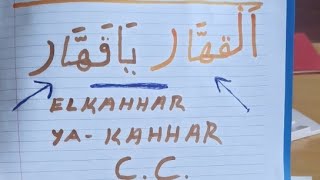 اَلْقَهَّار يَا قَهَّار
ELKAHHAR
YA-KAHHAR
C.C.